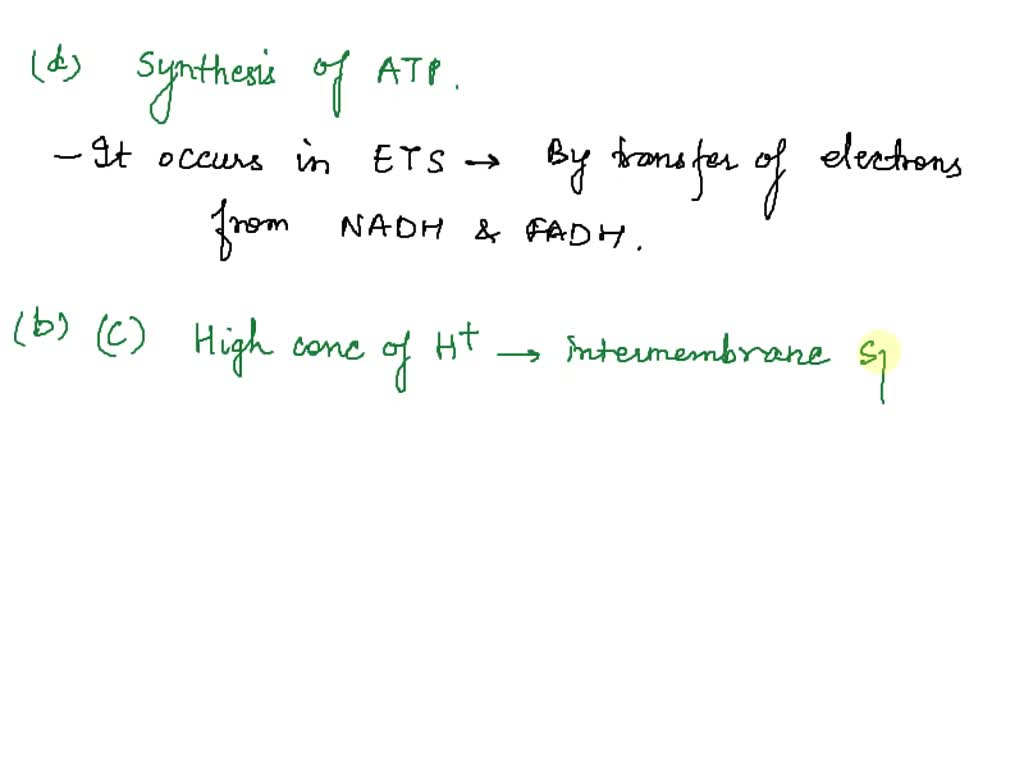 (d) Synthesis of ATP.
- It occurs in ETS → By transfer of electrons
from NADH & FADH.
(b) (C) High conc of H+ → intermembrane Sp